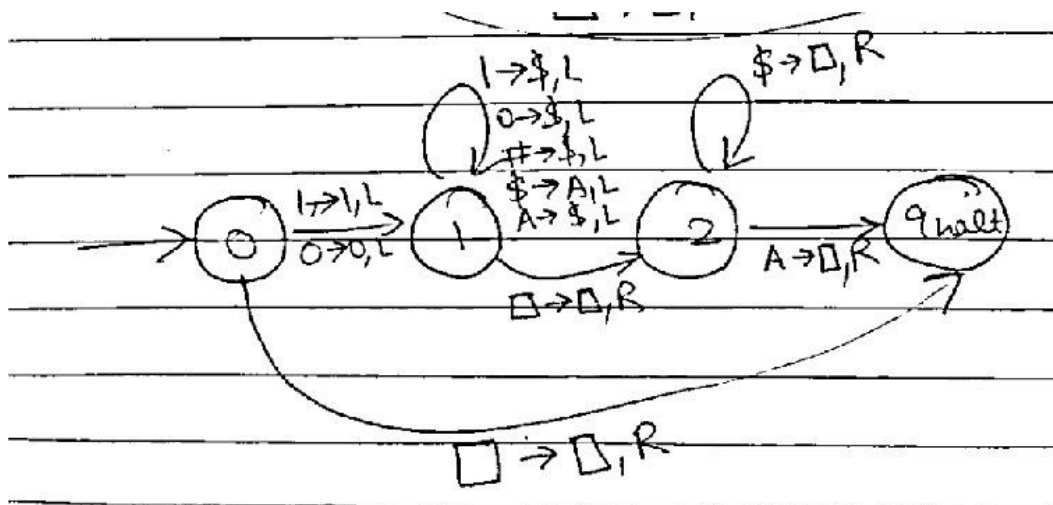 1→$,L
0→$,L
#→$,L
$→A,L
A→$,L
$→□,R
1→1,L
0→0,L
0
1
2
qhalt
□→□,R
A→□,R
□→□,R